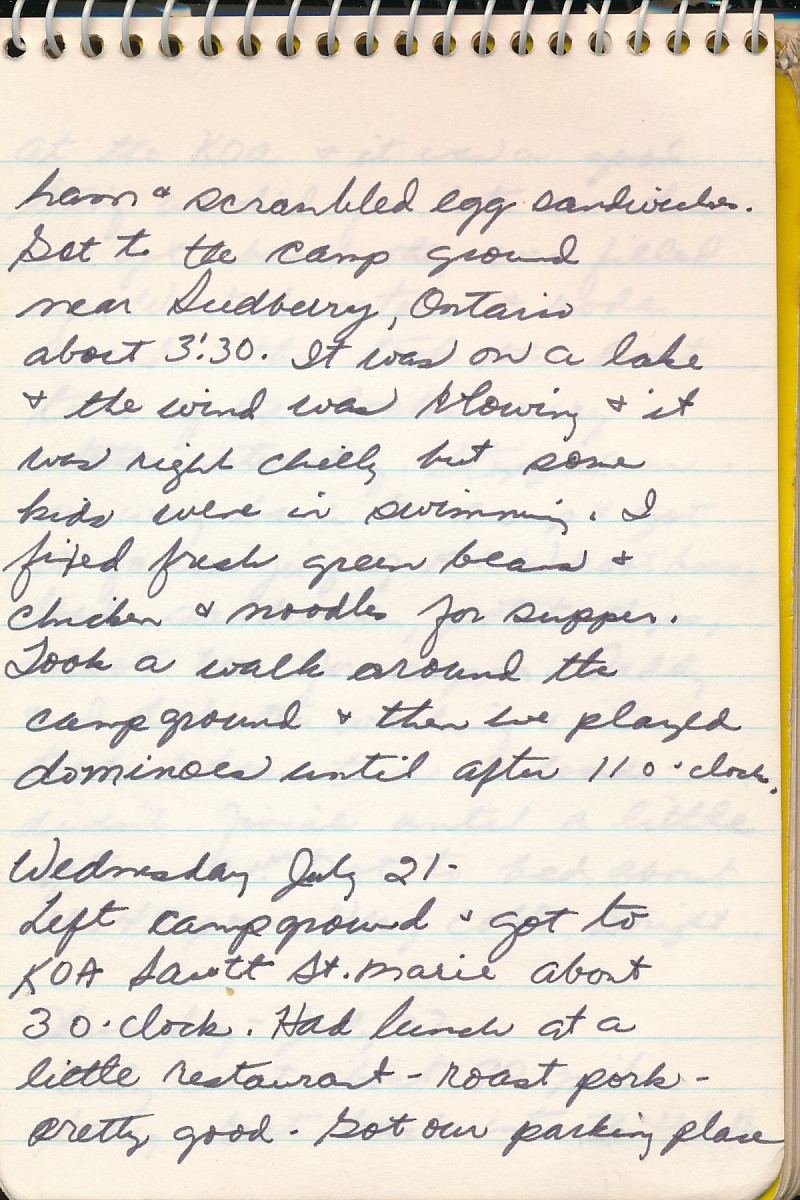 ham & scrambled egg sandwiches.
Got to the camp ground
near Sudberry, Ontario
about 3:30. It was on a lake
& the wind was blowing & it
was right chilly but some
kids were in swimming. I
fixed fresh green beans &
chicken & noodles for supper.
Took a walk around the
campground & then we played
dominoes until after 11 o'clock.
Wednesday July 21-
Left campground & got to
KOA Sautt St. Marie about
3 o'clock. Had lunch at a
little restaurant - roast pork -
pretty good. Got our parking place